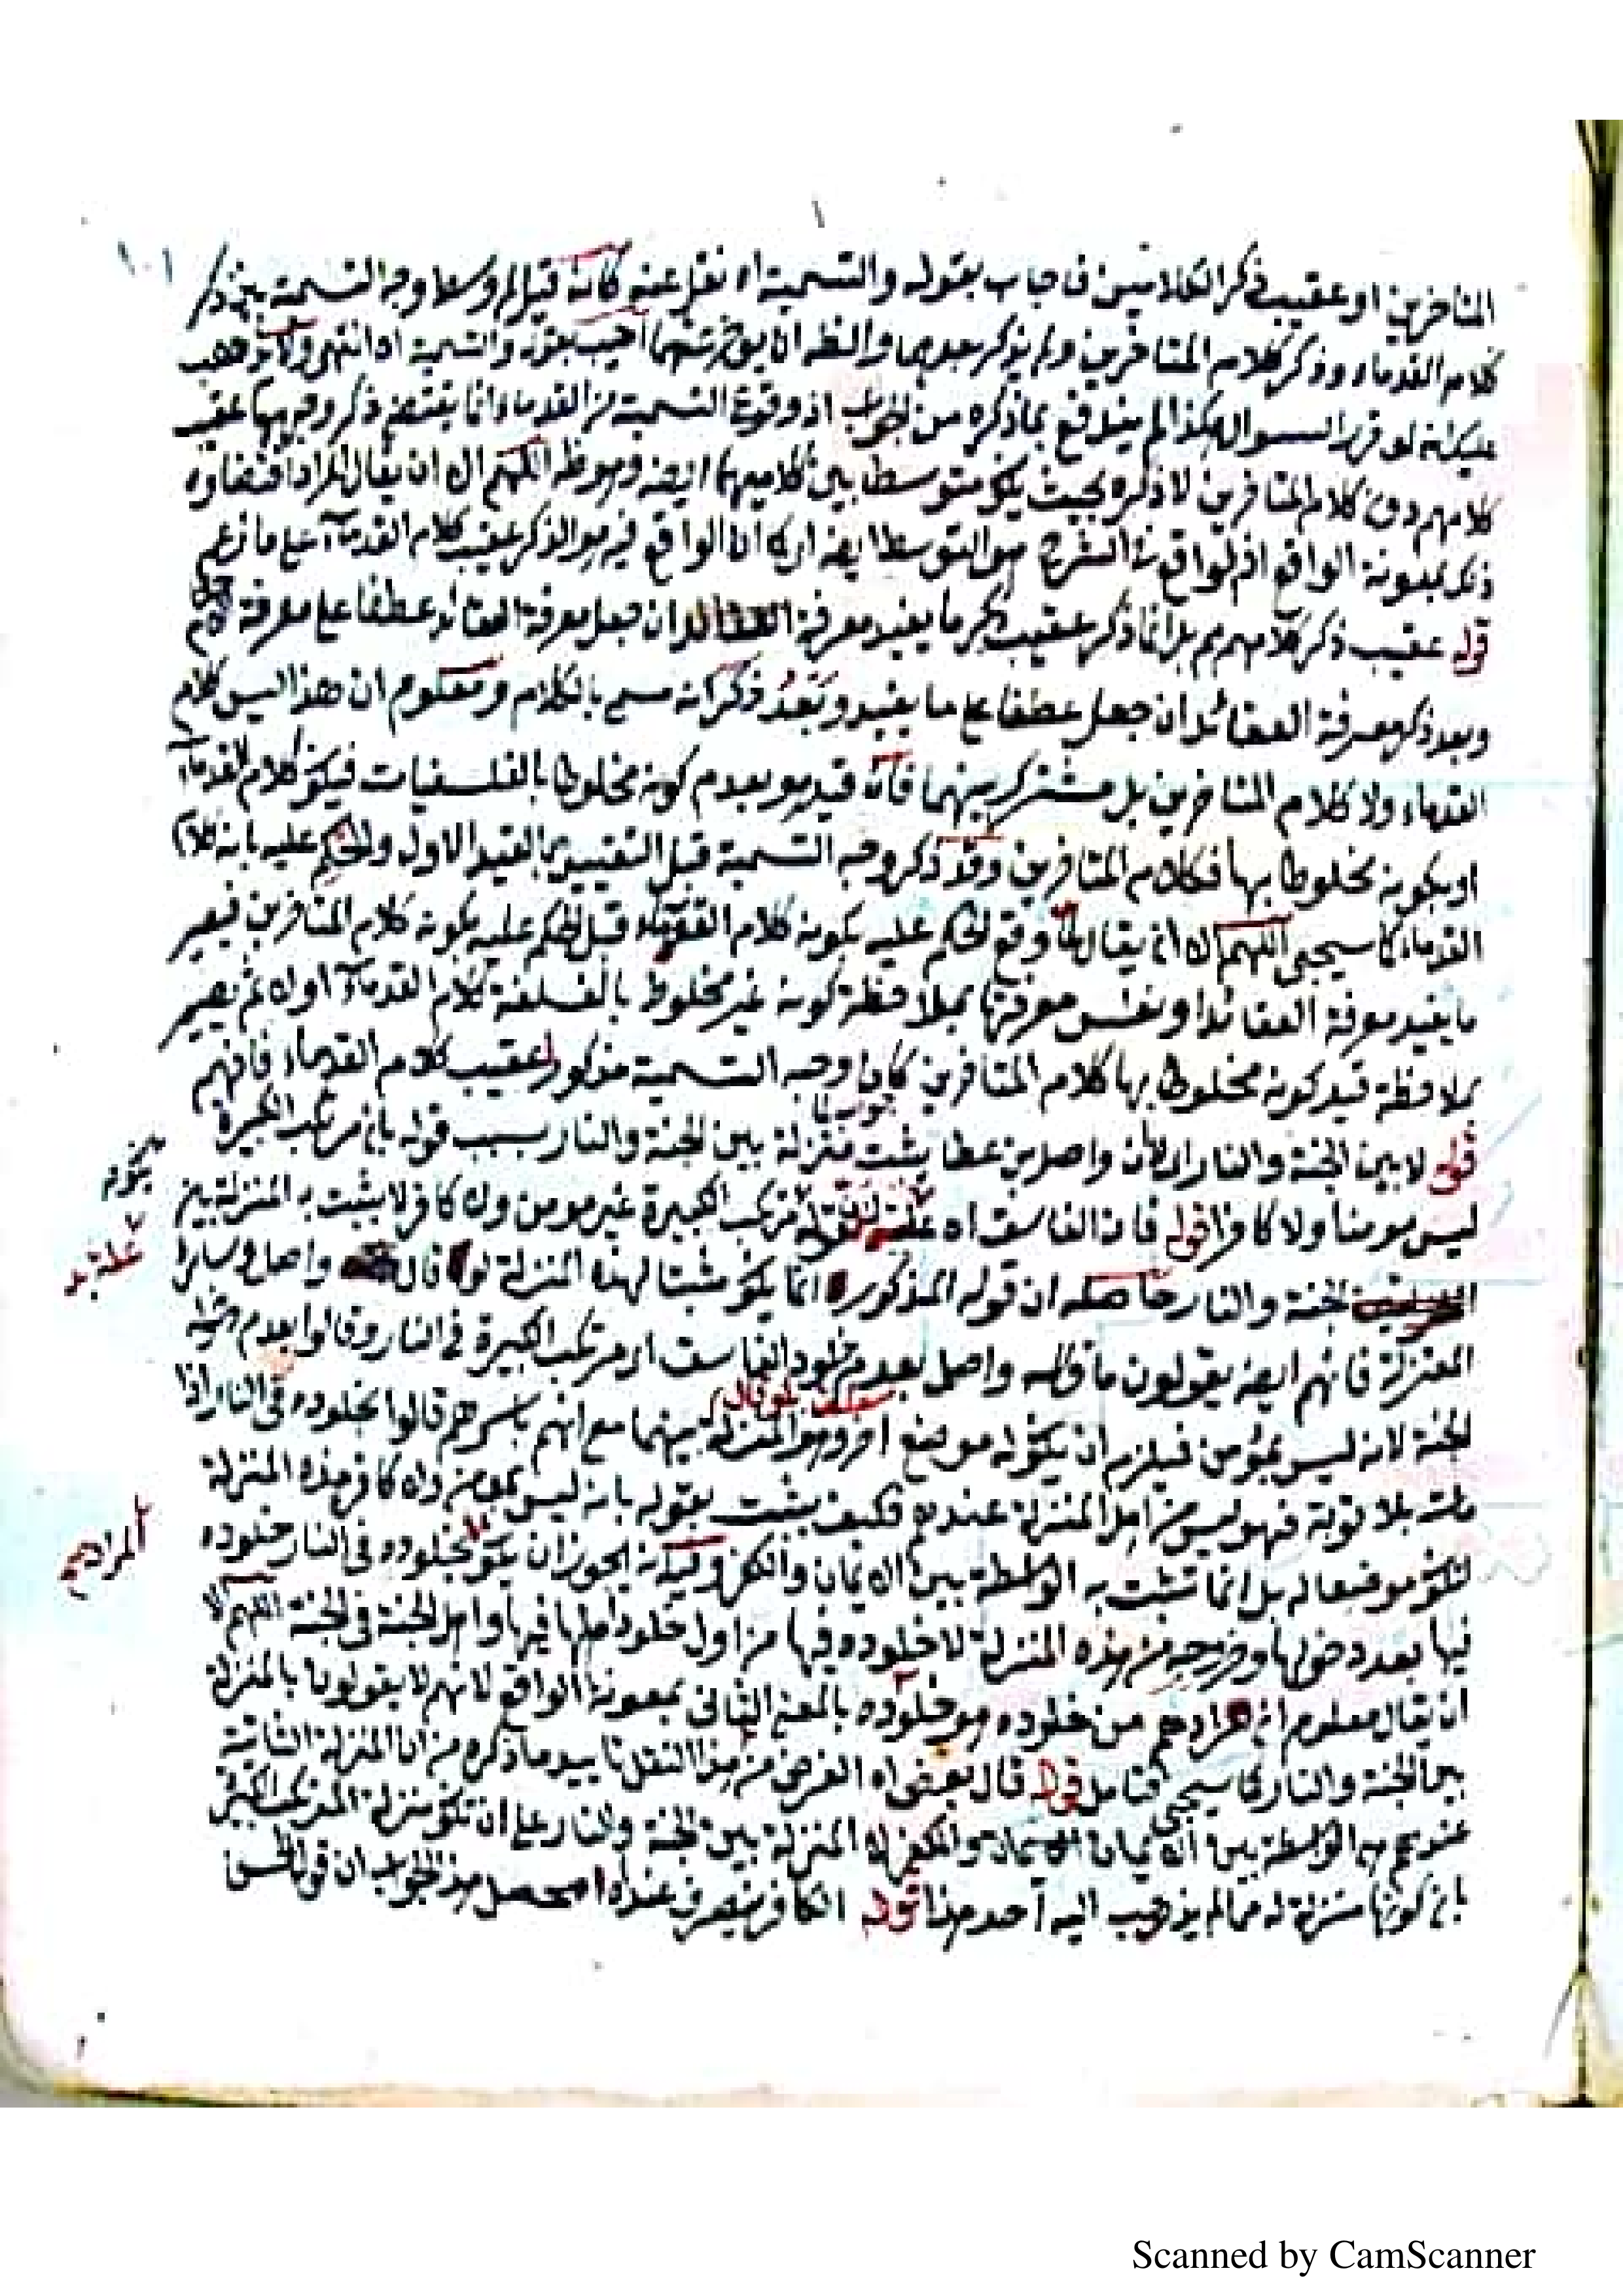 ١٠١
١
المتأخرين او عقيب ذكر الكلامين فاجاب بقوله والتسمية اه نقل عنه كانه قيل لم وسط وجه التسمية بين ذكر
كلام القدماء وذكر كلام المتأخرين ولم يذكر بعدهما والظ ان يؤخر عنهما اجيب بقوله والتسمية اه انتهى ولا يذهب
عليك انه لو قرر السوال هكذا لم يندفع بما ذكره من الجواب اذ وقوع التسمية من القدماء انما يقتضى ذكر وجهها عقيب
كلامهم دون كلام المتأخرين لا ذكره بحيث يكون متوسطا بين كلاميهما ايضه وهو ظ اللهم الا ان يقال المراد اقتضاؤه
ذلك بمعونة الواقع اذ الواقع فى الشرح هو التوسط ايضه اى كان الواقع فيه هو الذكر عقيب كلام القدماء على ما زعم
قوله عقيب ذكر كلامهم بل انما ذكر عقيب ذكر ما يفيد معرفة العقائد ان جعل معرفة العقائد عطفا على معرفة
وبعد ذكر معرفة العقائد ان جعل عطفا على ما يفيد وبَعْدُ ذكر انه سمى بالكلام ومعلوم ان هذا ليس كلام
القدماء ولا كلام المتأخرين بل مشترك بينهما فان قيد هو بعدم كونه مخلوطا بالفلسفيات فيكون كلام القدماء
او بكونه مخلوطا بها فكلام المتأخرين وقد ذكر وجه التسمية قبل التقييد بالقيد الاول والحكم عليه بانه كلام
القدماء كما سيجيى اللهم الا ان يقال لما وقع الحكم عليه بكونه كلام القدماء قبل الحكم عليه بكونه كلام المتأخرين فيصير
ما يفيد معرفة العقائد او نفس معرفتها بملاحظة كونه غير مخلوط بالفلسفة كلام القدماء اولا ثم يصير
بملاحظة قيد كونه مخلوطا بها كلام المتأخرين كان وجه التسمية مذكورا عقيب كلام القدماء فافهم
قوله لا بين الجنة والنار اى لان واصل بن عطا يثبت منزلة بين الجنة والنار بسبب قوله بان مرتكب الكبيرة
ليس مومنا ولا كافرا قوله فان الفاسق اه علة لقوله مرتكب الكبيرة غير مومن ولا كافر لا يثبت به المنزلة بين
الجنة والنار حاصله ان قوله المذكور انما يكون مثبتا لهذه المنزلة لو قال واصل وسائر
المعتزلة فانهم ايضه يقولون ما قاله واصل بعدم خلود الفاسق اى مرتكب الكبيرة فى النار وقالوا بعدم دخوله
الجنة لانه ليس بمؤمن فيلزم ان يكون له موضع اخر وهو المنزلة بينهما مع انهم باسرهم قالوا بخلوده فى النار اذا
مات بلا توبة فهو ليس من اهل المنزلة عندهم فكيف يثبت بقوله بانه ليس بمومن ولا كافر هذه المنزلة
لتكون موضعا له بل انما تثبت به الواسطة بين الايمان والكفر وفيه انه يجوز ان يكون بخلوده فى النار خلوده
فيها بعد دخولها وخروجه من هذه المنزلة لا خلوده فيها من اول خلود اهلها فيها واهل الجنة فى الجنة اللهم الا
ان يقال معلوم ان مرادهم من خلوده هو خلوده بالمعنى الثانى بمعونة الواقع لانهم لا يقولون بالمنزلة
بين الجنة والنار كما سيجيى فتامل قوله قال بعض اه الغرض من هذا النقل تاييد ما ذكره من ان المنزلة الثابتة
عندهم هى الواسطة بين الايمان والكفر لا المنزلة بين الجنة والنار على ان تكون منزلة المرتكب الكبيرة
بان كونها منزلة له مما لم يذهب اليه احد هذا قوله الكافر فينصرف عنده اه محصل هذا الجواب ان قول الحسن
المرادهم
Scanned by CamScanner